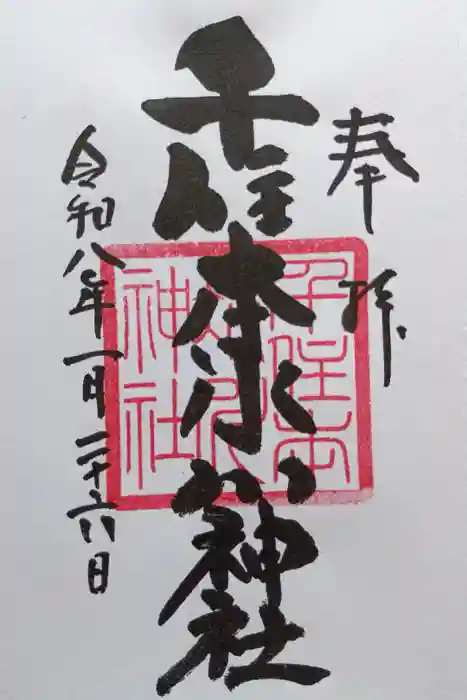 奉拝
千住本氷川神社
千住本
氷川
神社
令和八年一月二十六日